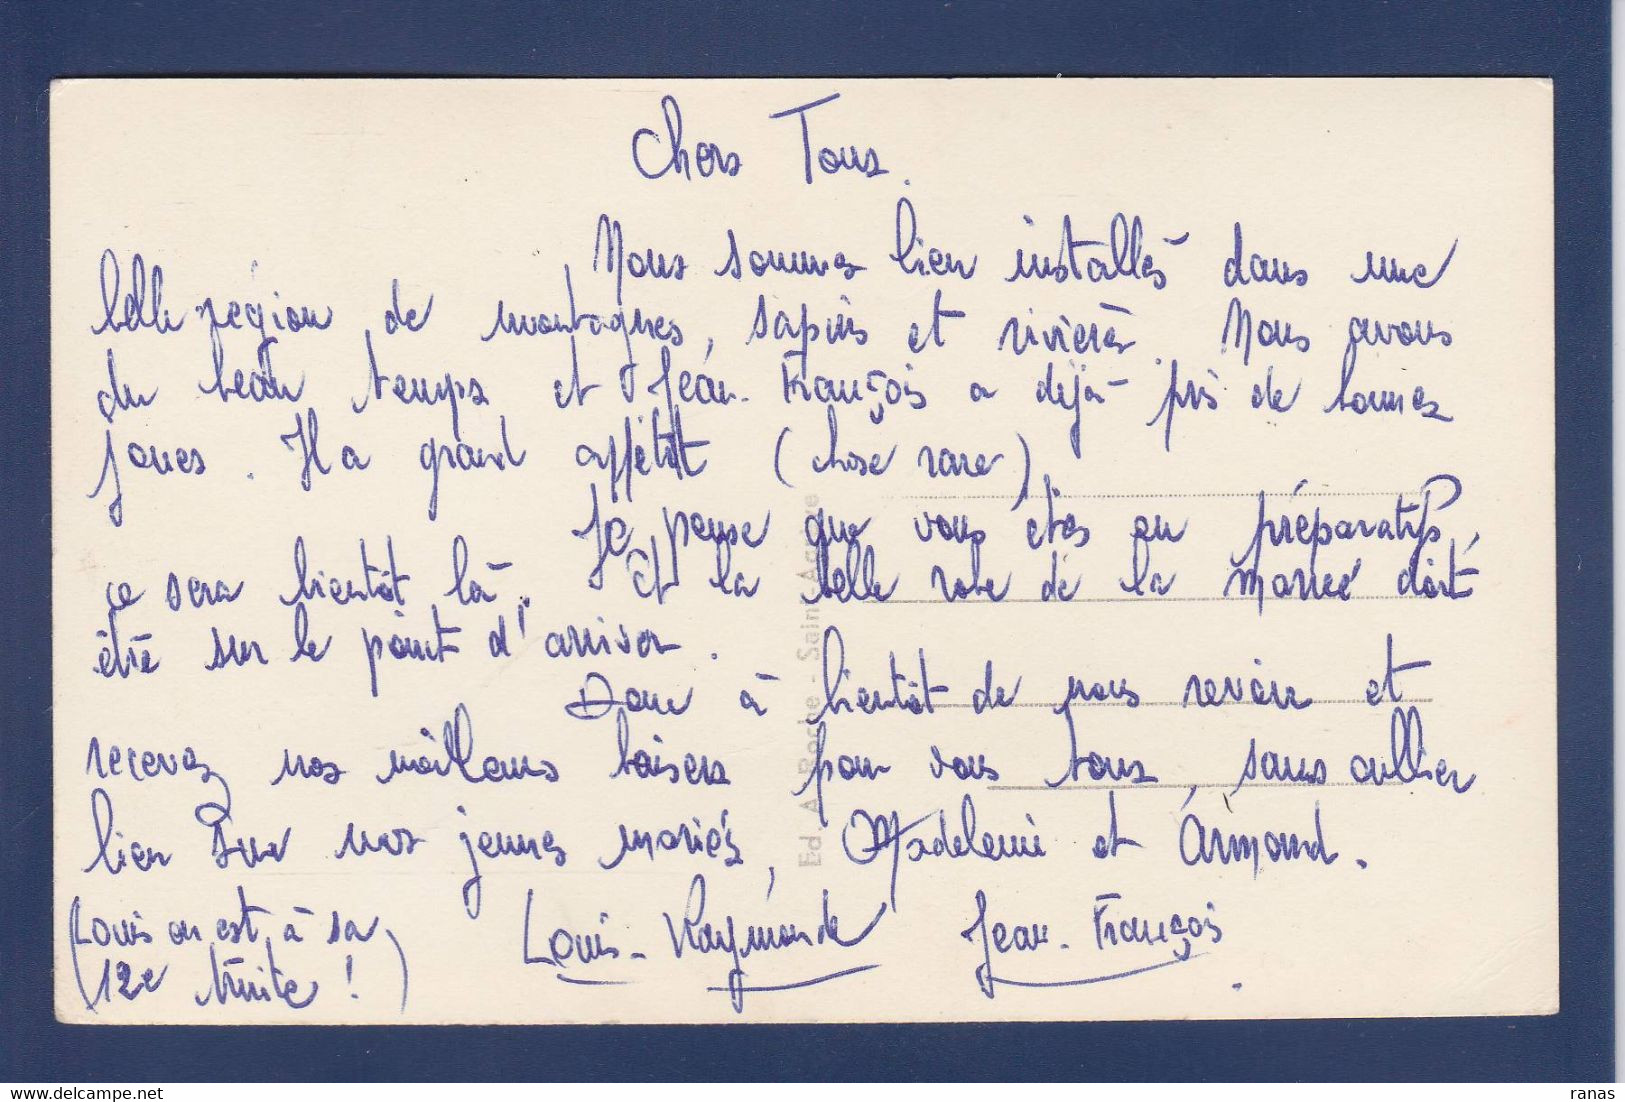 Chers Tous.
Nous sommes bien installés dans une
belle région de montagnes, sapins et rivières. Nous avons
du beau temps et Jean-François a déjà pris de bonnes
joues. Il a grand appétit (chose rare)
Je pense que vous êtes en préparatifs,
ce sera bientôt là. et la belle robe de la mariée doit
être sur le point d'arriver.
Donc à bientôt de nous revoir et
recevez nos meilleurs baisers pour vous tous, sans oublier
bien sur nos jeunes mariés, Madeleine et Armand.
Louis-Raymonde Jean-François.
(Louis en est à sa
12e truite!)
Ed. A. Roche - Saint-Agrève
ranas
delcampe.net